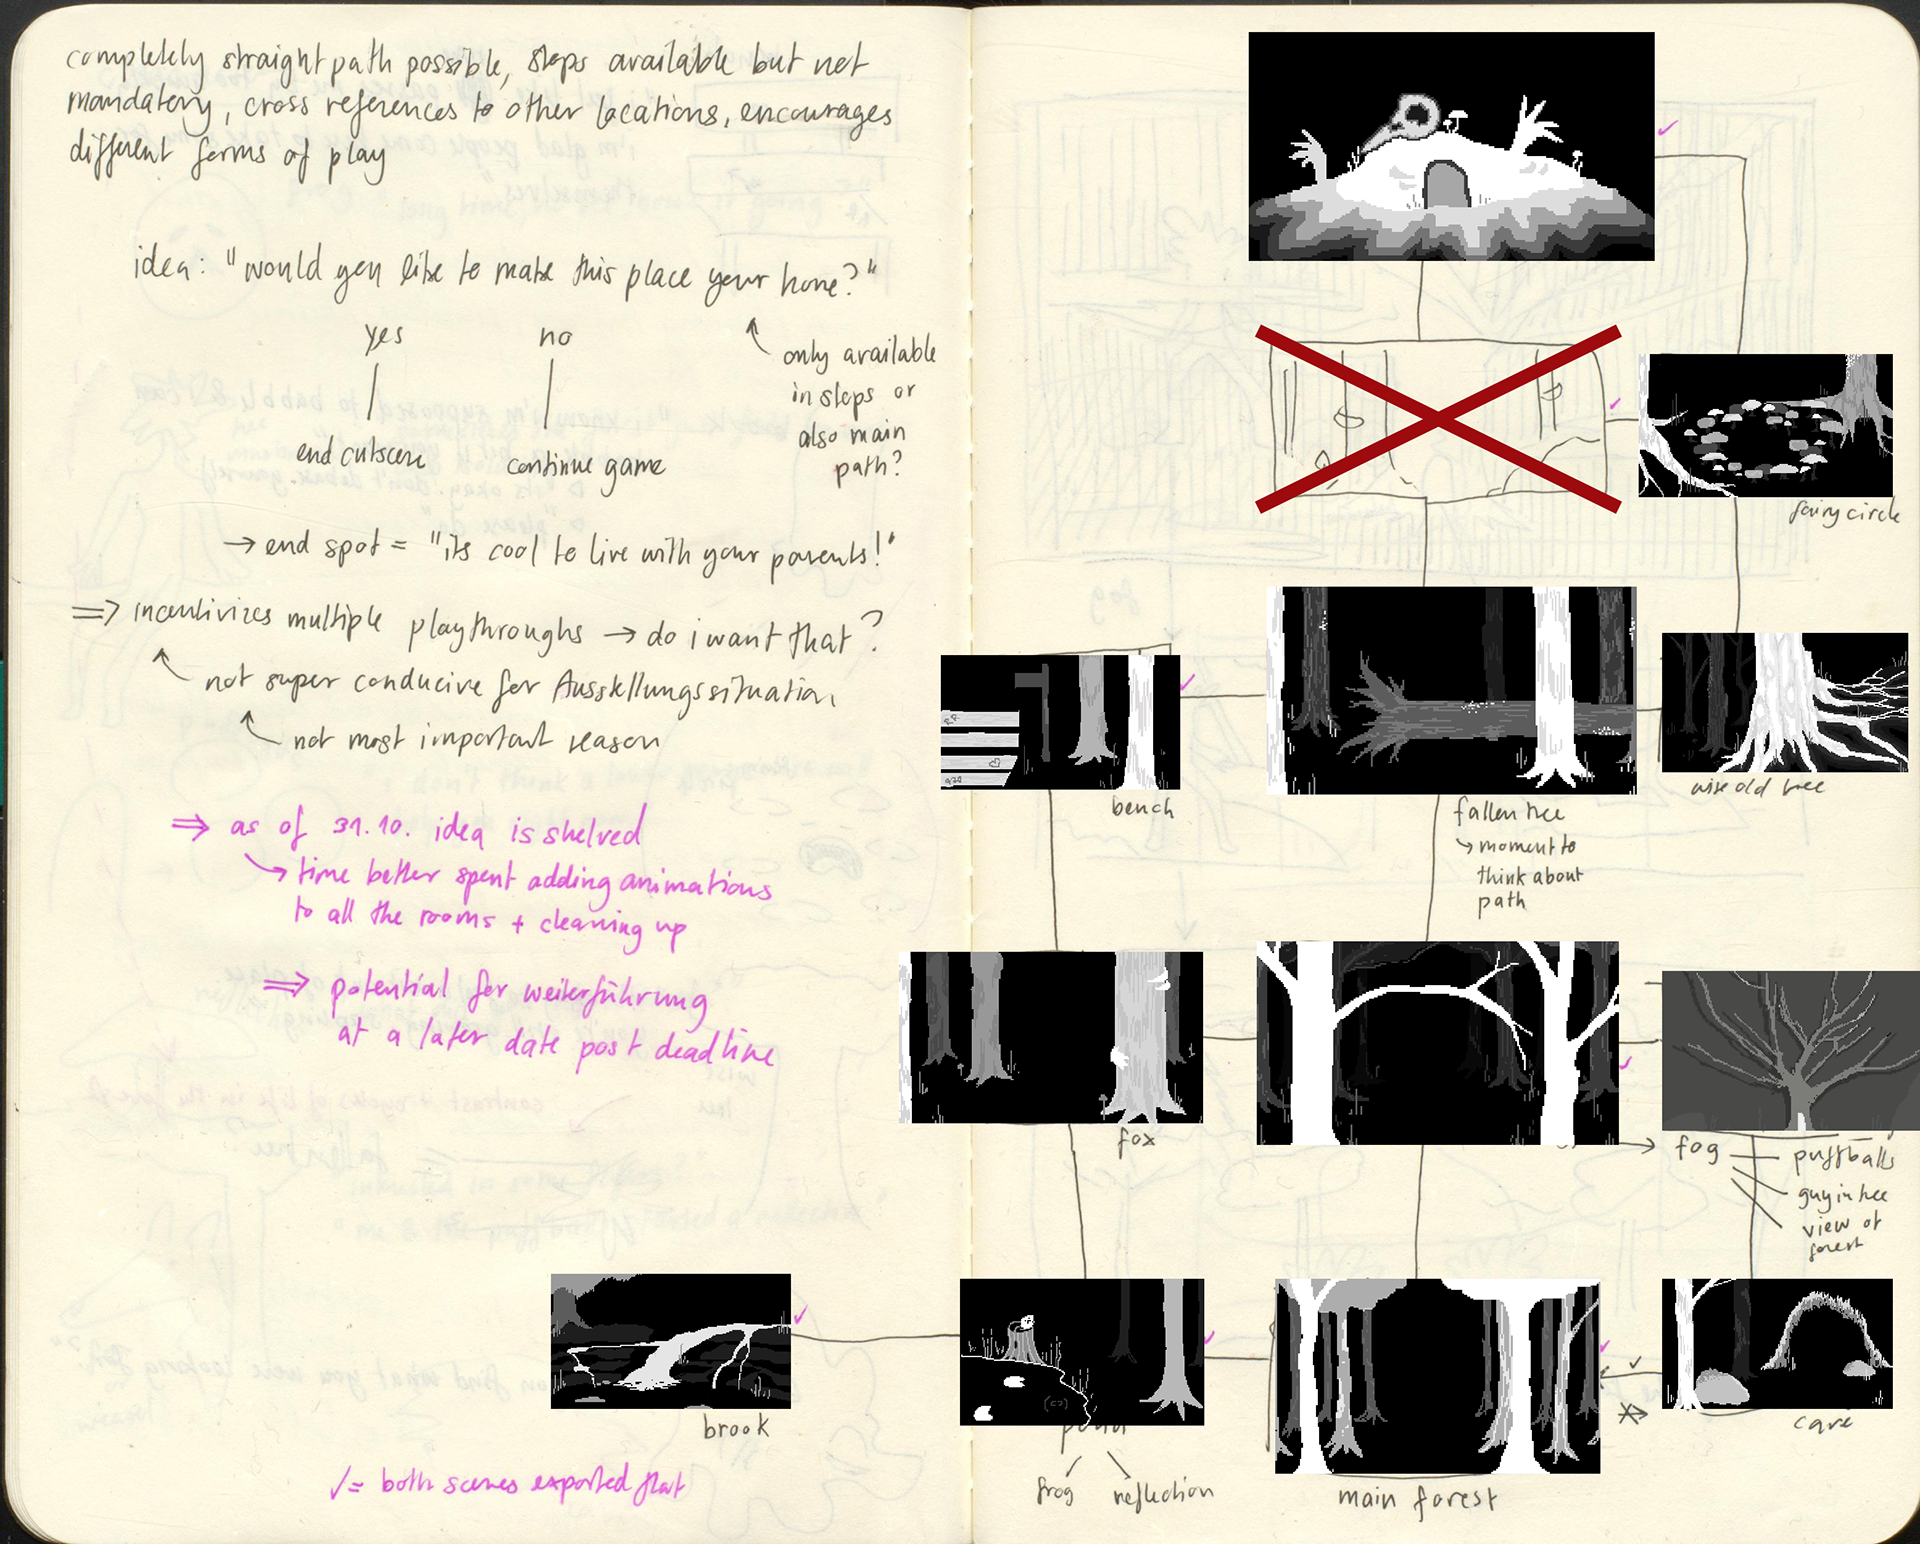 completely straight path possible, stops available but not
mandatory, cross references to other locations, encourages
different forms of play
idea: "would you like to make this place your home?"
yes no
only available
in stops or
also main
path?
end cutscene continue game
→ end spot = "its cool to live with your parents!"
⇒ incentivizes multiple playthroughs → do i want that?
not super conducive for Ausstellungssituation
not most important reason
⇒ as of 31.10. idea is shelved
→ time better spent adding animations
to all the rooms + cleaning up
⇒ potential for weiterführung
at a later date post deadline
✓= both scenes exported flat
fairy circle
bench
fallen tree
↳ moment to
think about
path
wise old tree
fox
fog
puffballs
guy in tree
view of
forest
brook
frog reflection
main forest
cave